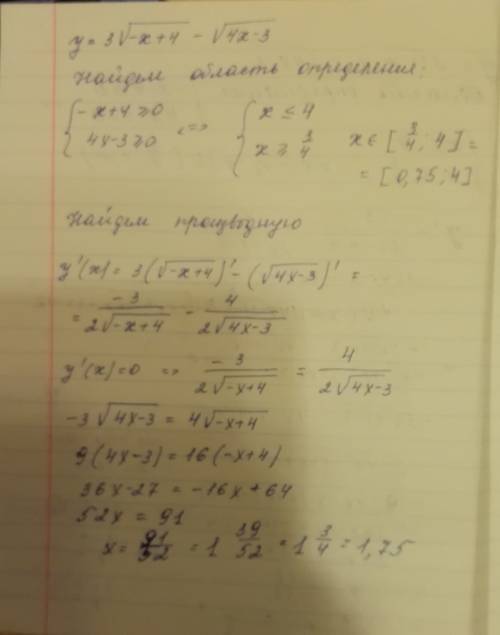 y = 3√(-x+4) - √(4x-3)
Найдем область определения:
{ -x+4 ≥ 0 <=> { x ≤ 4
{ 4x-3 ≥ 0 { x ≥ 3/4 x ∈ [3/4; 4] =
= [0,75; 4]
Найдем производную
y'(x) = 3(√(-x+4))' - (√(4x-3))' =
= -3/(2√(-x+4)) - 4/(2√(4x-3))
y'(x)=0 => -3/(2√(-x+4)) = 4/(2√(4x-3))
-3√(4x-3) = 4√(-x+4)
9(4x-3) = 16(-x+4)
36x-27 = -16x+64
52x = 91
x = 91/52 = 1 39/52 = 1 3/4 = 1,75